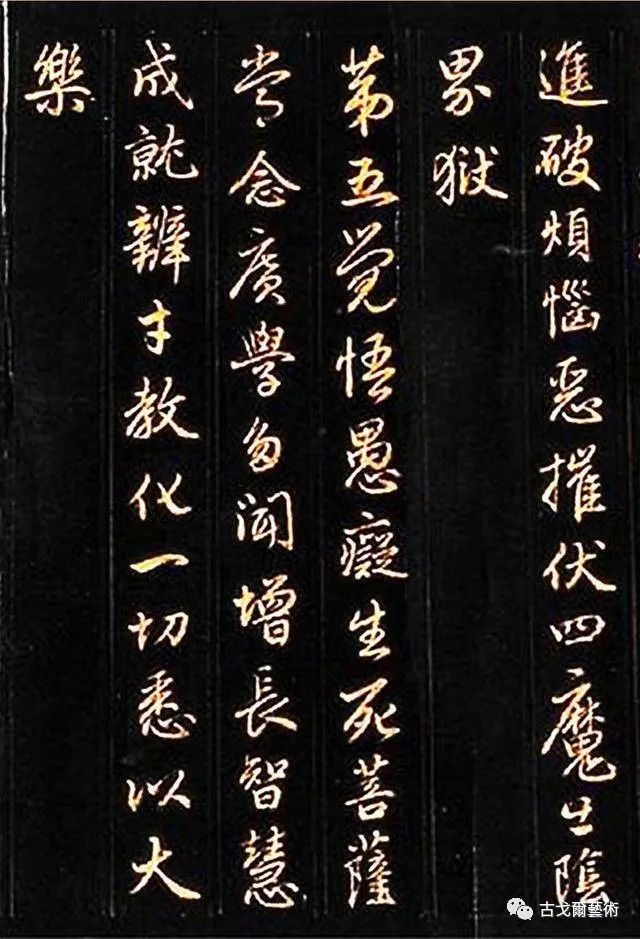 進破煩惱惡摧伏四魔出陰
界獄
第五覺悟愚癡生死菩薩
常念廣學多聞增長智慧
成就辯才教化一切悉以大
樂
古戈爾藝術